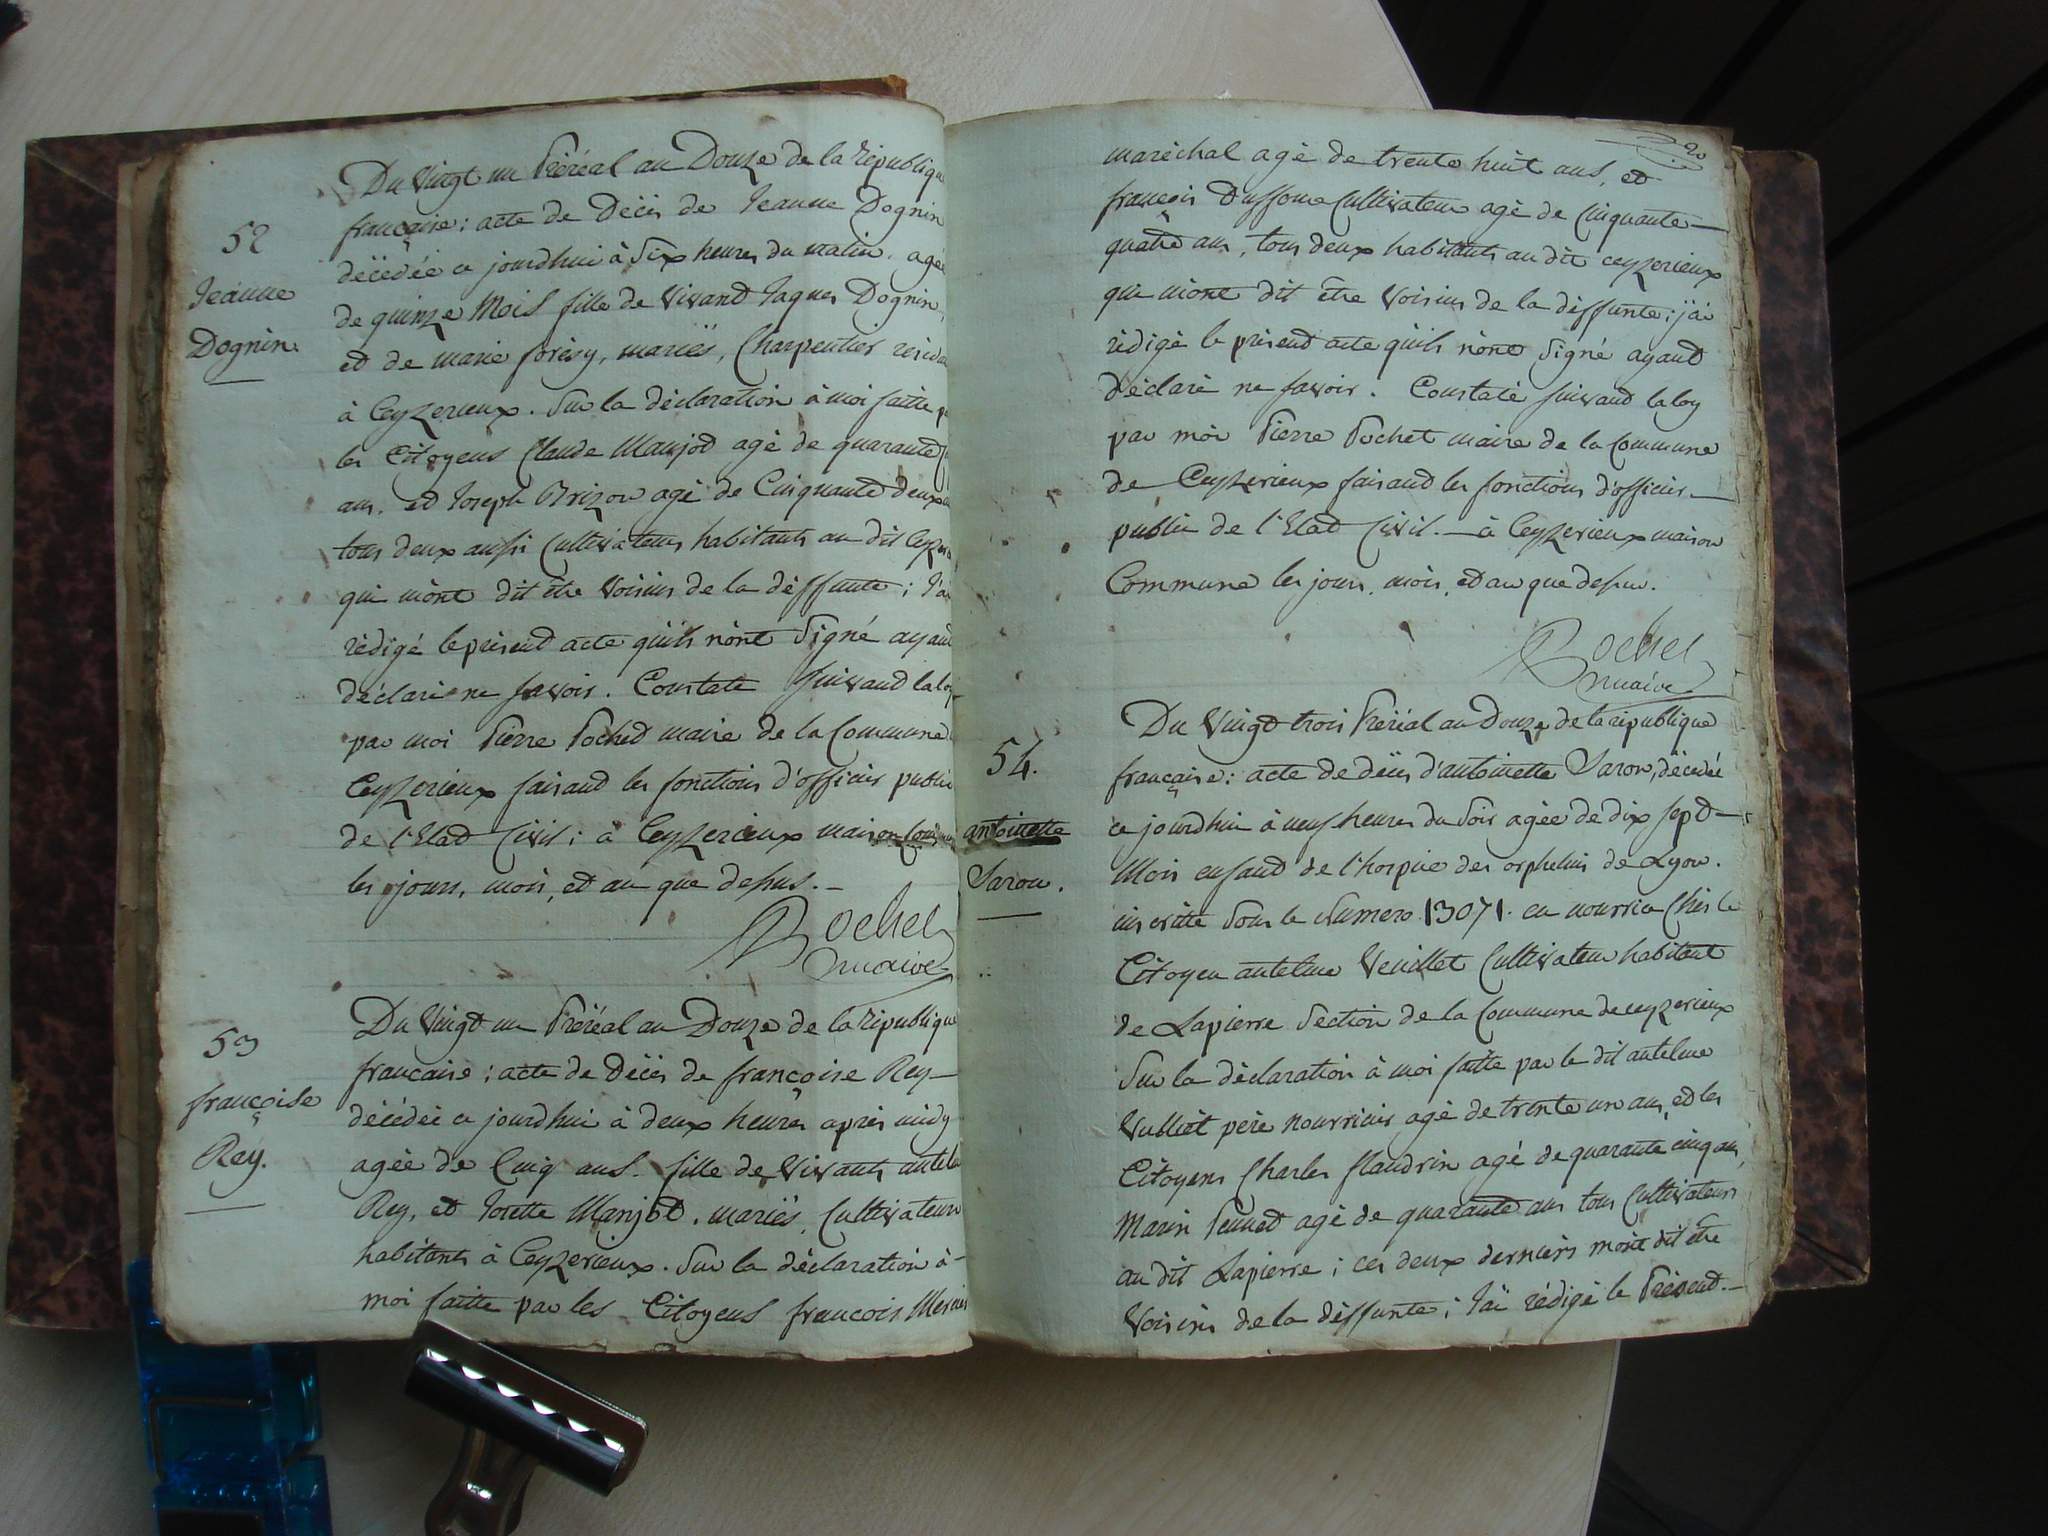 52
Jeanne
Dognin.
Du Vingt un Préréal an Douze de la république
française : acte de Décès de Jeanne Dognin
décédée ce jourdhui à Six heures du matin. agée
de quinze Mois fille de Vivand Jaques Dognin,
et de marie forésy, mariés, Charpentier
à Ceyzerieux. Sur la déclaration à moi faitte
les Citoyens Claude Manjod agé de quarante
ans. et Joseph Brizon agé de Cinquante deux
tous deux aussi Cultivateurs habitants au dit
qui m'ont dit être Voisins de la déffunte ; J'ai
rédigé le présend acte qu'ils n'ont Signé ayand
déclaré ne savoir. Constaté suivand la loy
par moi Pierre Poched maire de la Commune
Ceyzerieux faisand les fonctions d'officier public
de l'Etad Civil ; à Ceyzerieux maison
les jours, mois, et an que dessus. -
Pochet
maire
53
françoise
Rey.
Du Vingt un Préréal an Douze de la république
francaise ; acte de Décès de françoise Rey -
décédée ce jourdhui à deux heures après midy
agée de Cinq ans. fille de Vivants
Rey, et Josette Manjot, mariés, Cultivateurs
habitants à Ceyzerieux. Sur la déclaration à -
moi faitte par les Citoyens francois Mercier
20
maréchal agé de trente huit ans, et
françois Cultivateur agé de Cinquante -
quatre ans, tous deux habitants au dit ceyzerieux
qui m'ont dit être Voisins de la déffunte ; j'ai
rédigé le présend acte qu'ils n'ont Signé ayand
déclaré ne savoir. Constaté suivand la loy
par moi Pierre Pochet maire de la Commune
de Ceyzerieux faisand les fonctions d'officier -
public de l'Etad Civil. - à Ceyzerieux maison
Commune les jours, mois, et an que dessus.
Pochet
maire
54.
antoinette
Saron.
Du Vingt trois Préréal an Douze de la république
française : acte de décès d'antoinette Saron, décédée
ce jourdhui à neuf heures du Soir agée de dix sept -
Mois enfand de l'hospice des orphelins de Lyon.
inscritte Sous le Numero 13071. en nourrice Chés le
Citoyen antelme Veuillet Cultivateur habitant
de Lapierre Section de la Commune de ceyzerieux
Sur la déclaration à moi faitte par le dit antelme
Vulliet père nourricier agé de trente un ans, et les
Citoyens Charles flandrin agé de quarante cinq ans,
Marin agé de quarante ans tous Cultivateurs
au dit Lapierre ; ces deux derniers m'ont dit être
Voisins de la déffunte ; J'ai rédigé le Présend. -